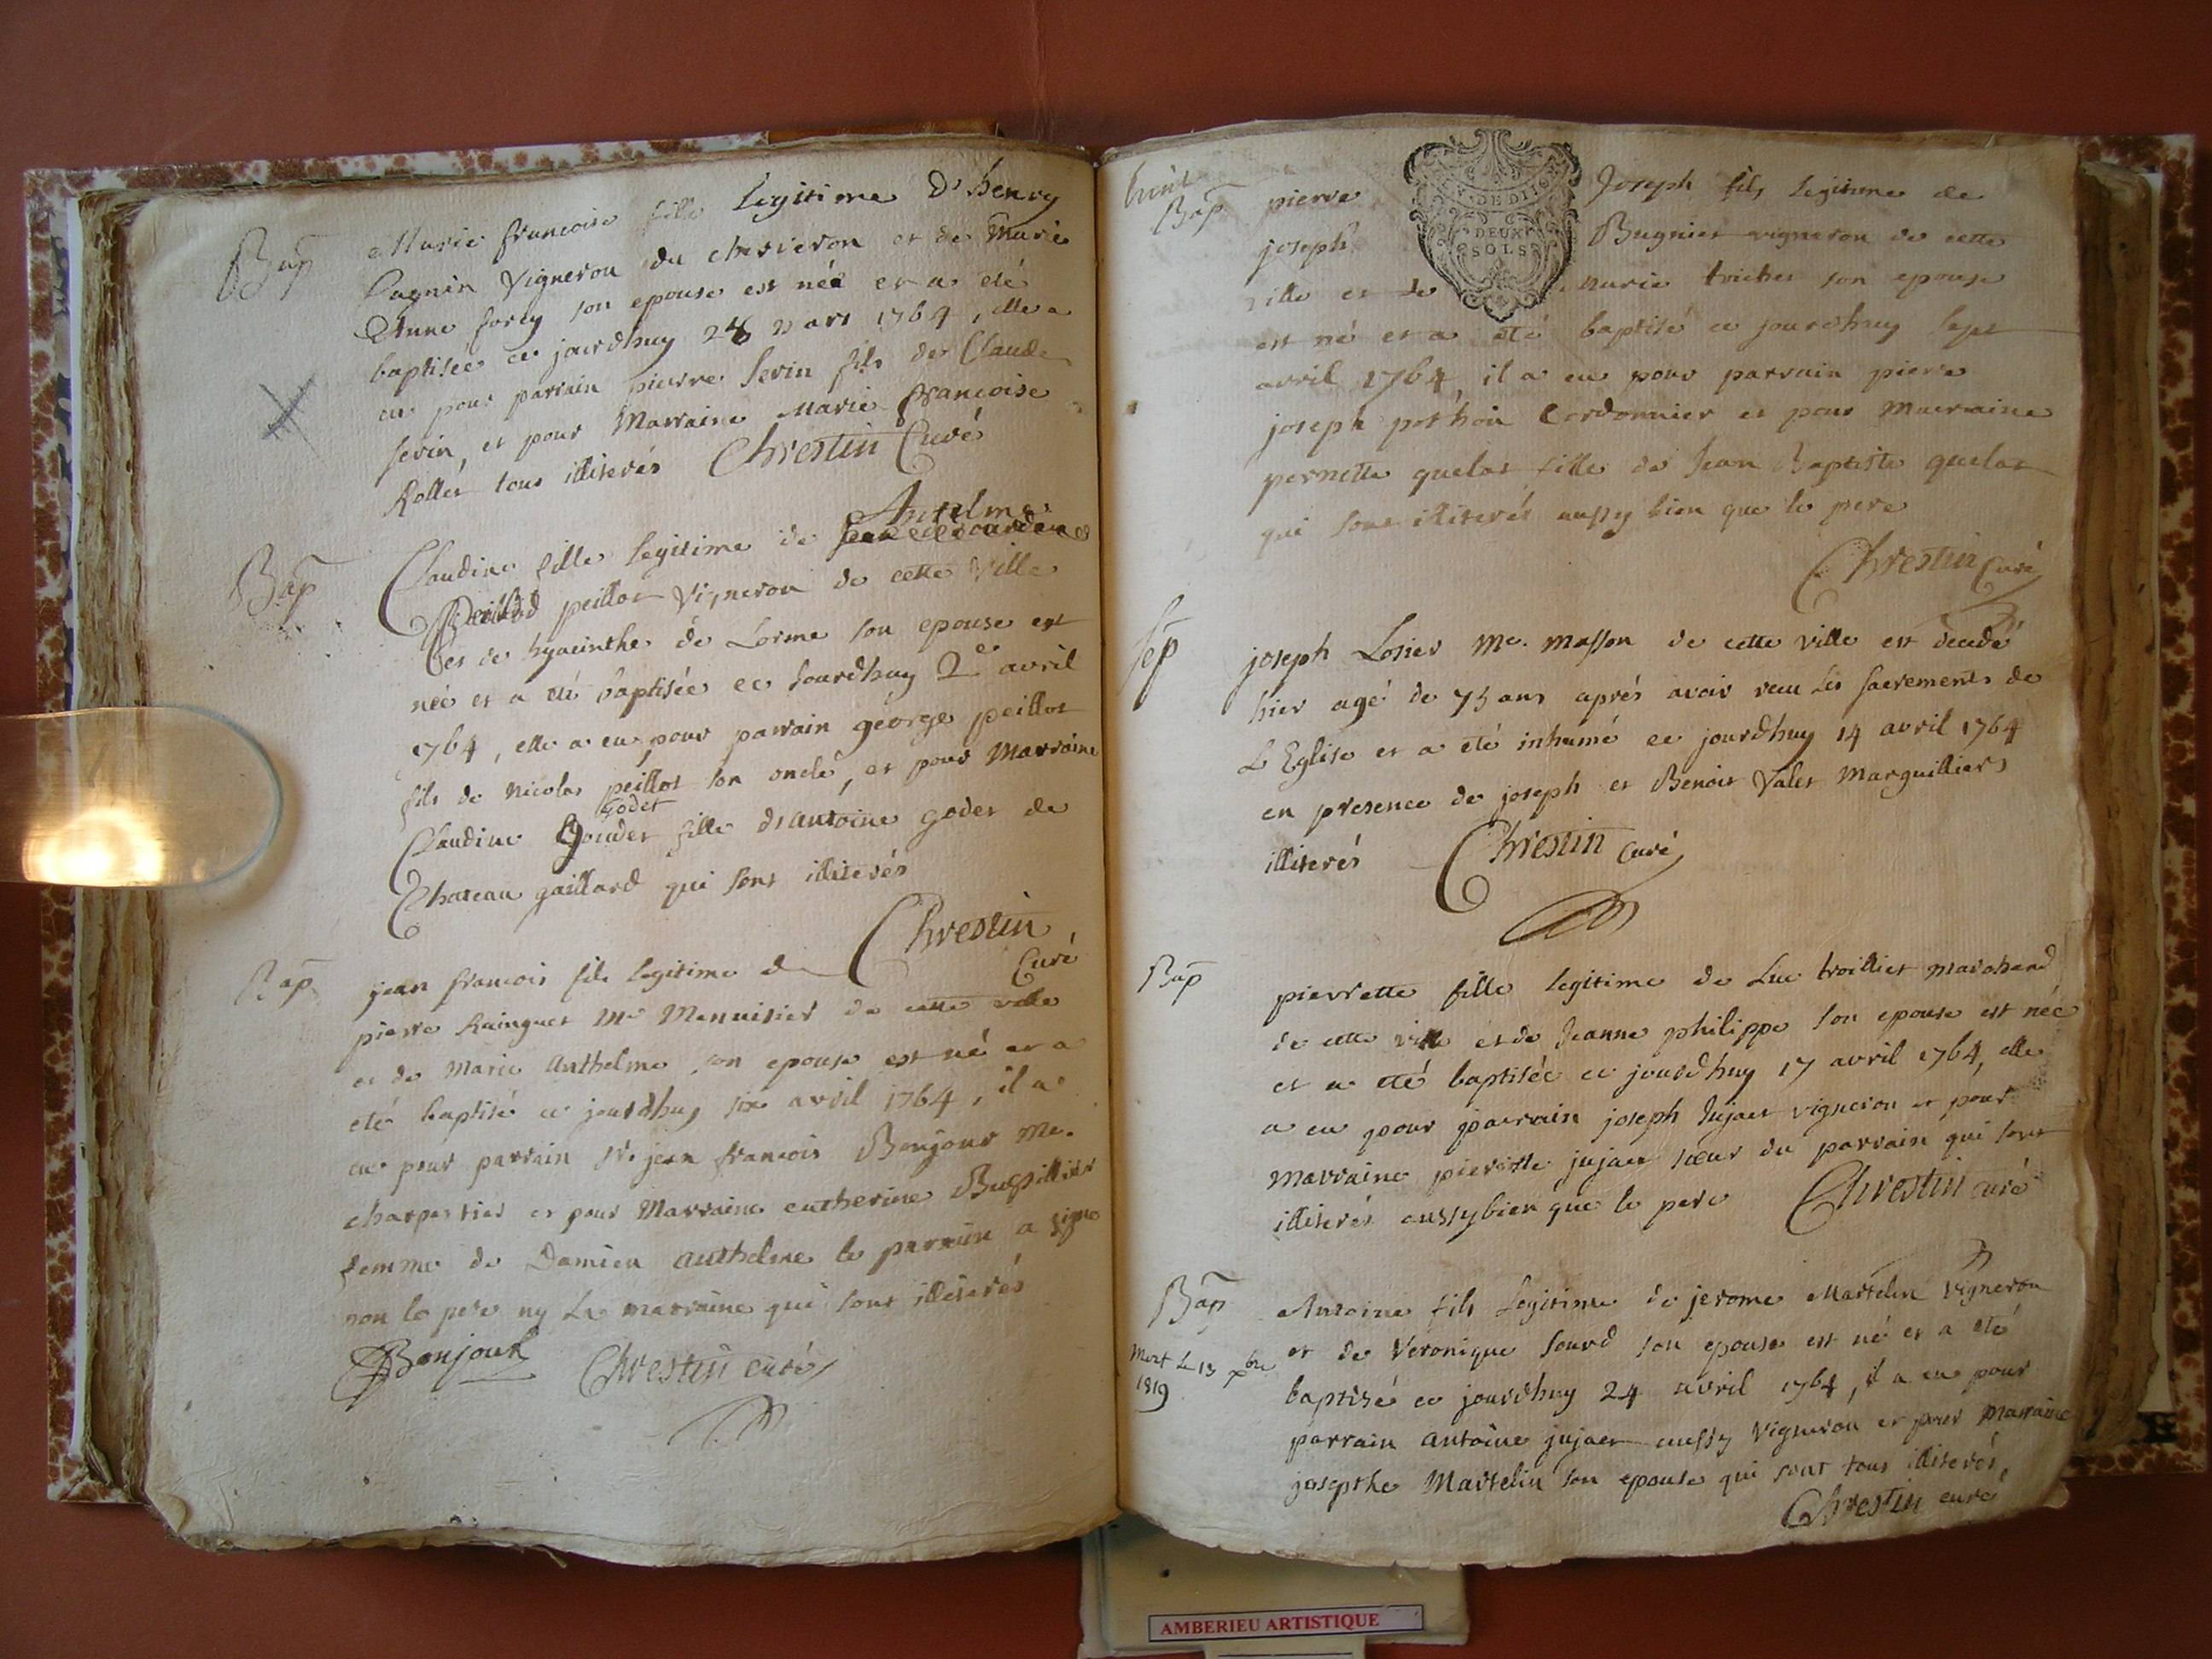 Bap
Marie francoise fille legitime d'henry
pagnin Vigneron du chasieron et de Marie
Anne forey son epouse est née et a eté
baptisée ce jourdhuy 28 mars 1764, elle a
eu pour parrain pierre serin fils de Claude
serin, et pour Marraine Marie francoise
Rollet tous illiterés Chrestin Curé
Bap
Anthelme
Claudine fille legitime de
peillod peillot Vigneron de cette Ville
et de hyacinthe de Lorme son epouse est
née et a eté baptisée ce jourdhuy 2e avril
1764, elle a eu pour parrain george peillot
fils de Nicolas peillot son oncle, et pour Marraine
godet
Claudine gouder fille d'antoine godet de
Chateau gaillard qui sont illiterés
Chrestin
Curé
Bap
jean francois fils legitime de
pierre Rainguet Me Menuisier de cette ville
et de Marie Anthelme son epouse est né et a
eté baptisé ce jourdhuy six avril 1764, il a
eu pour parrain sr. jean francois Bonjour Me.
charpentier et pour Marraine catherine Bussillier
femme de Damien Anthelme le parrain a signé
non le pere ny La marraine qui sont illiterés
Bonjour Chrestin curé
huit
Bap
DE DI
DEUX
SOLS
pierre Joseph fils legitime de
joseph Bugnier vigneron de cette
ville et de Marie trichet son epouse
est né et a eté baptisé ce jourdhuy sept
avril 1764, il a eu pour parrain piere
joseph pothon Cordonnier et pour Marraine
pernette quelat fille de Jean Baptiste quelat
qui sont illiterés aussy bien que le pere
Chrestin Curé
Sep
joseph Losier Me. Masson de cette ville est decedé
hier agé de 75 ans aprés avoir receu Les sacrements de
L'Eglise et a eté inhumé ce jourdhuy 14 avril 1764
en presence de joseph et Benoit Valet Marguilliers
illiterés Chrestin Curé
Bap
pierrette fille legitime de Luc troillet marchand
de cette ville et de Jeanne philippe son epouse est née
et a eté baptisée ce jourdhuy 17 avril 1764, elle
a eu pour parrain joseph Jujaet vigneron et pour
Marraine pierette jujaet sœur du parrain qui sont
illiterés aussybien que le pere Chrestin curé
Bap
Mort Le 13 xbre
1819
Antoine fils Legitime de jerome Martelin Vigneron
et de Veronique sourd son epouse est né et a eté
baptisé ce jourdhuy 24 avril 1764, il a eu pour
parrain Antoine jujaet aussy Vigneron et pour Marraine
josepthe Martelin son epouse qui sont tous illiterés,
Chrestin curé
AMBERIEU ARTISTIQUE